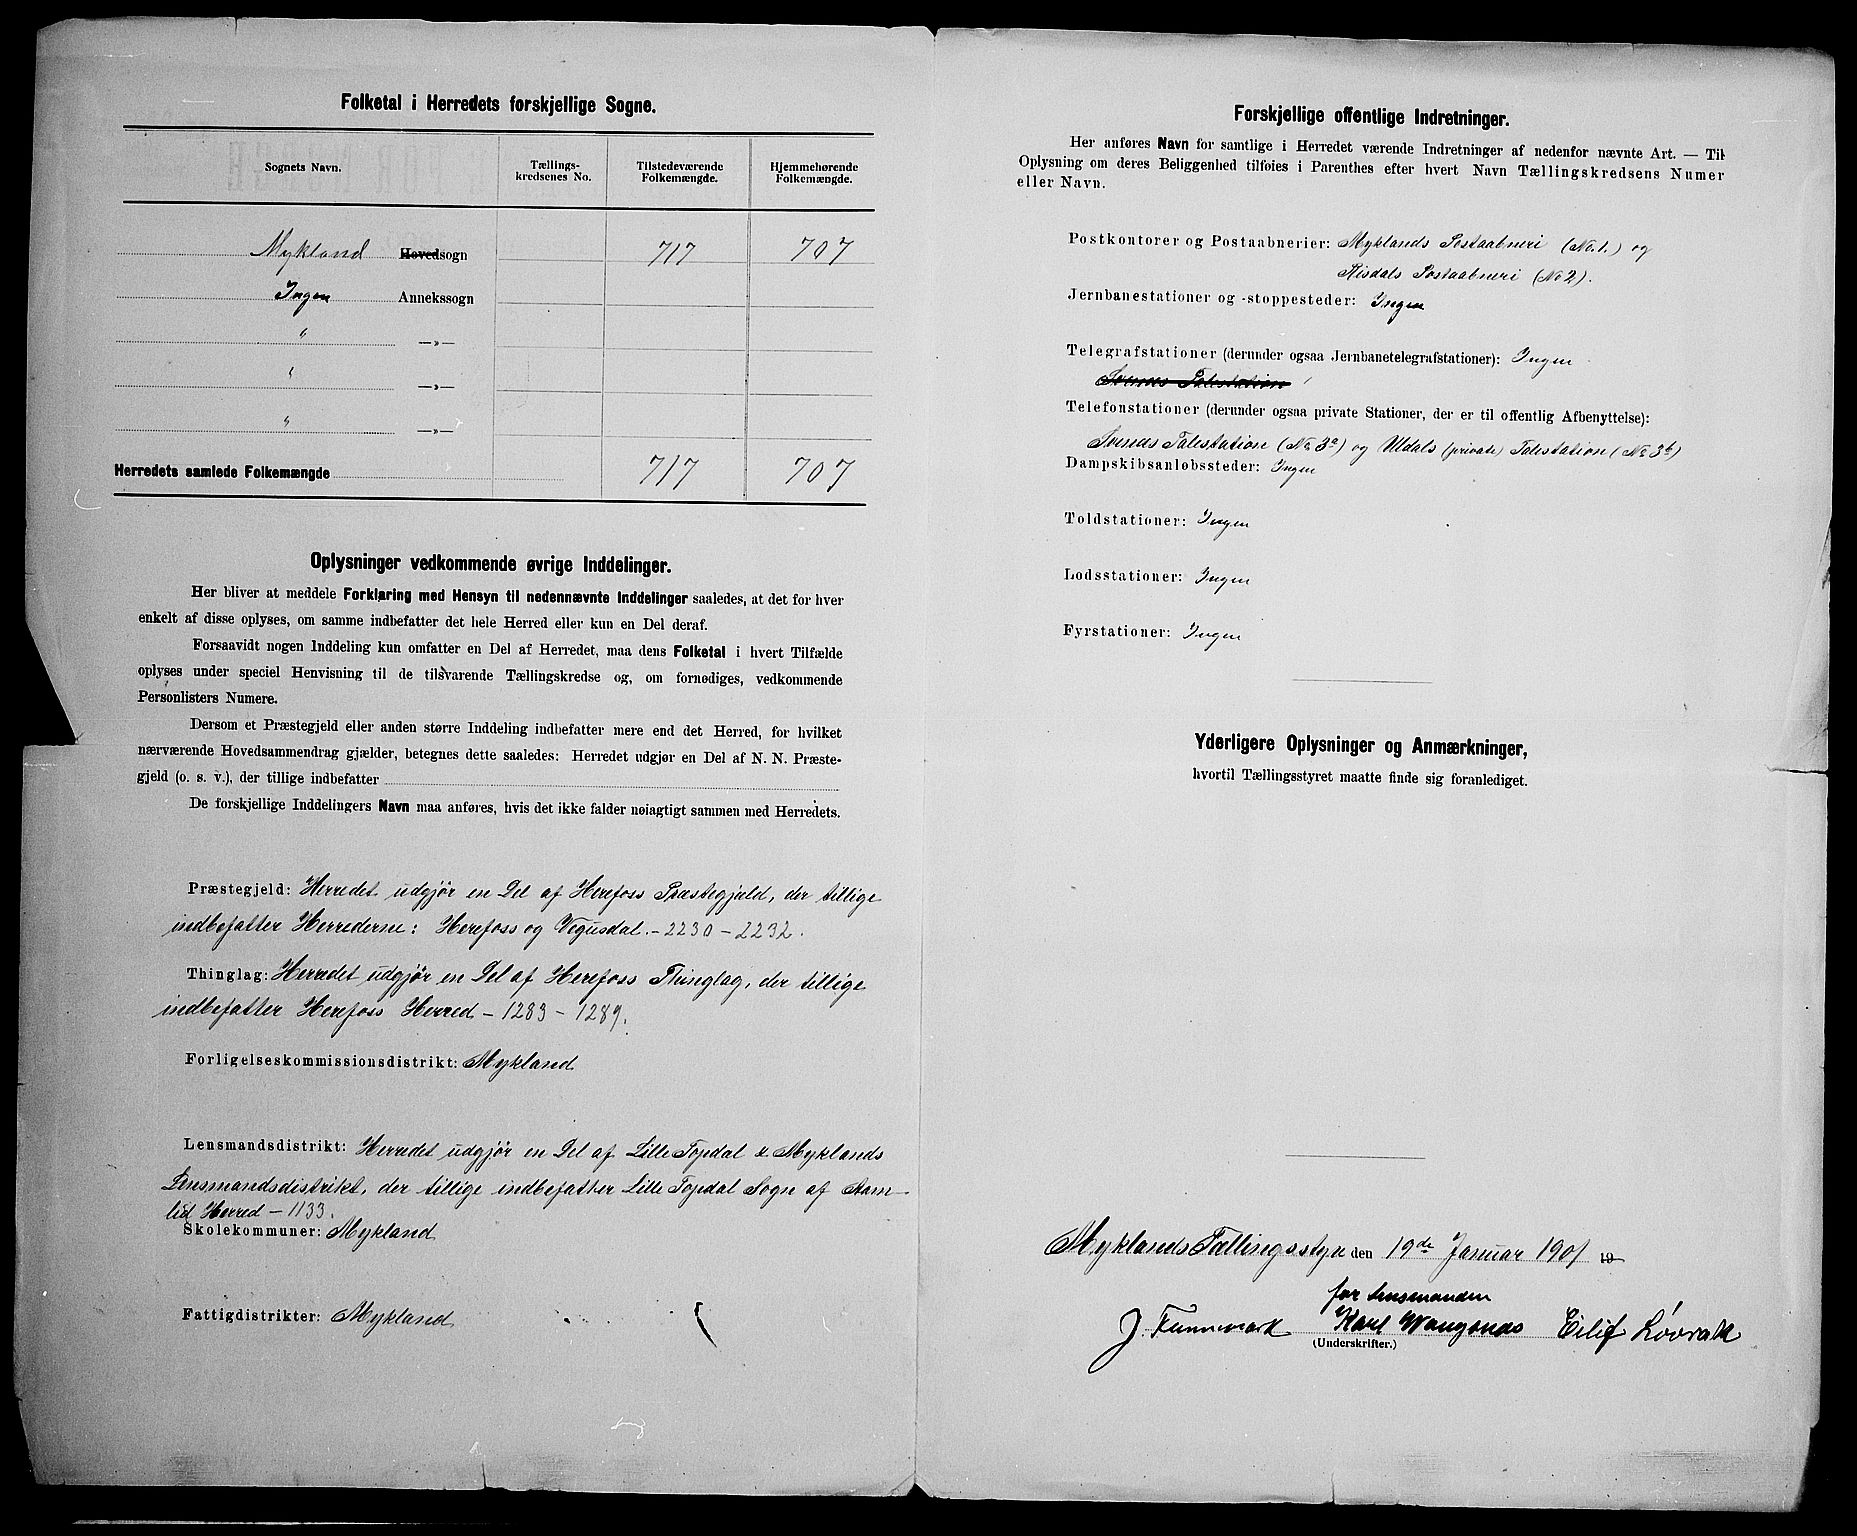 Folketal i Herredets forskjellige Sogne.
Sognets Navn. Tællings-kredsenes No. Tilstedeværende Folkemængde. Hjemmehørende Folkemængde.
Mykland Hovedsogn 717 707
Ingen Annekssogn
" —»—
" —»—
" —»—
Herredets samlede Folkemængde 717 707
Oplysninger vedkommende øvrige Inddelinger.
Her bliver at meddele Forklaring med Hensyn til nedennævnte Inddelinger saaledes, at det for hver
enkelt af disse oplyses, om samme indbefatter det hele Herred eller kun en Del deraf.
Forsaavidt nogen Inddeling kun omfatter en Del af Herredet, maa dens Folketal i hvert Tilfælde
oplyses under speciel Henvisning til de tilsvarende Tællingskredse og, om fornødiges, vedkommende
Personlisters Numere.
Dersom et Præstegjeld eller anden større Inddeling indbefatter mere end det Herred, for hvilket
nærværende Hovedsammendrag gjælder, betegnes dette saaledes: Herredet udgjør en Del af N. N. Præste-
gjeld (o. s. v.), der tillige indbefatter
De forskjellige Inddelingers Navn maa anføres, hvis det ikke falder nøiagtigt sammen med Herredets.
Præstegjeld: Herredet udgjør en Del af Herefoss Præstegjæld, der tillige
indbefatter Herrederne: Herefoss og Vegusdal. - 2230 - 2232.
Thinglag: Herredet udgjør en Del af Herefoss Thinglag, der tillige
indbefatter Herefoss Herred - 1283 - 1289.
Forligelseskommissionsdistrikt: Mykland
Lensmandsdistrikt: Herredet udgjør en Del af Lille Topdal & Myklands
Lensmandsdistrikt, der tillige indbefatter Lille Topdal Sogn af Aam-
lid Herred - 1133.
Skolekommuner: Mykland
Fattigdistrikter: Mykland
Forskjellige offentlige Indretninger.
Her anføres Navn for samtlige i Herredet værende Indretninger af nedenfor nævnte Art. — Til
Oplysning om deres Beliggenhed tilføies i Parenthes efter hvert Navn Tællingskredsens Numer
eller Navn.
Postkontorer og Postaabnerier: Myklands Postaabneri (No. 1.) og
Risdals Postaabneri (No 2).
Jernbanestationer og -stoppesteder: Ingen
Telegrafstationer (derunder ogsaa Jernbanetelegrafstationer): Ingen
Svenes Talestation
Telefonstationer (derunder ogsaa private Stationer, der er til offentlig Afbenyttelse):
Svenes Talestation (No 3a) og Uldals (private) Talestation (No 3b)
Dampskibsanløbssteder: Ingen
Toldstationer: Ingen
Lodsstationer: Ingen
Fyrstationer: Ingen
Yderligere Oplysninger og Anmærkninger,
hvortil Tællingsstyret maatte finde sig foranlediget.
Myklands Tællingsstyre den 19de Januar 1901 19
for Lensmanden
J. Tunnemark Karl Eilif Løvrak
(Underskrifter.)